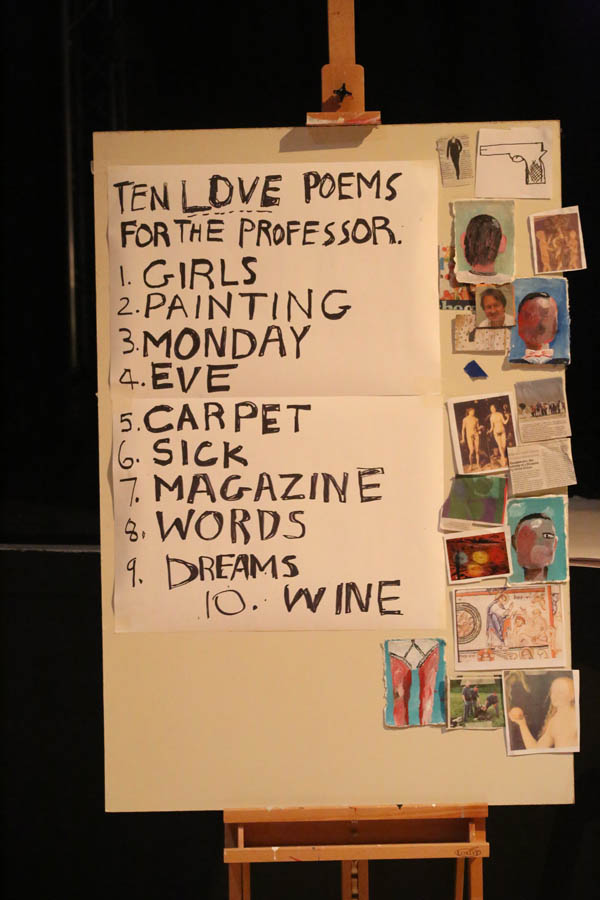 TEN LOVE POEMS
FOR THE PROFESSOR.
1. GIRLS
2. PAINTING
3. MONDAY
4. EVE
5. CARPET
6. SICK
7. MAGAZINE
8. WORDS
9. DREAMS
10. WINE